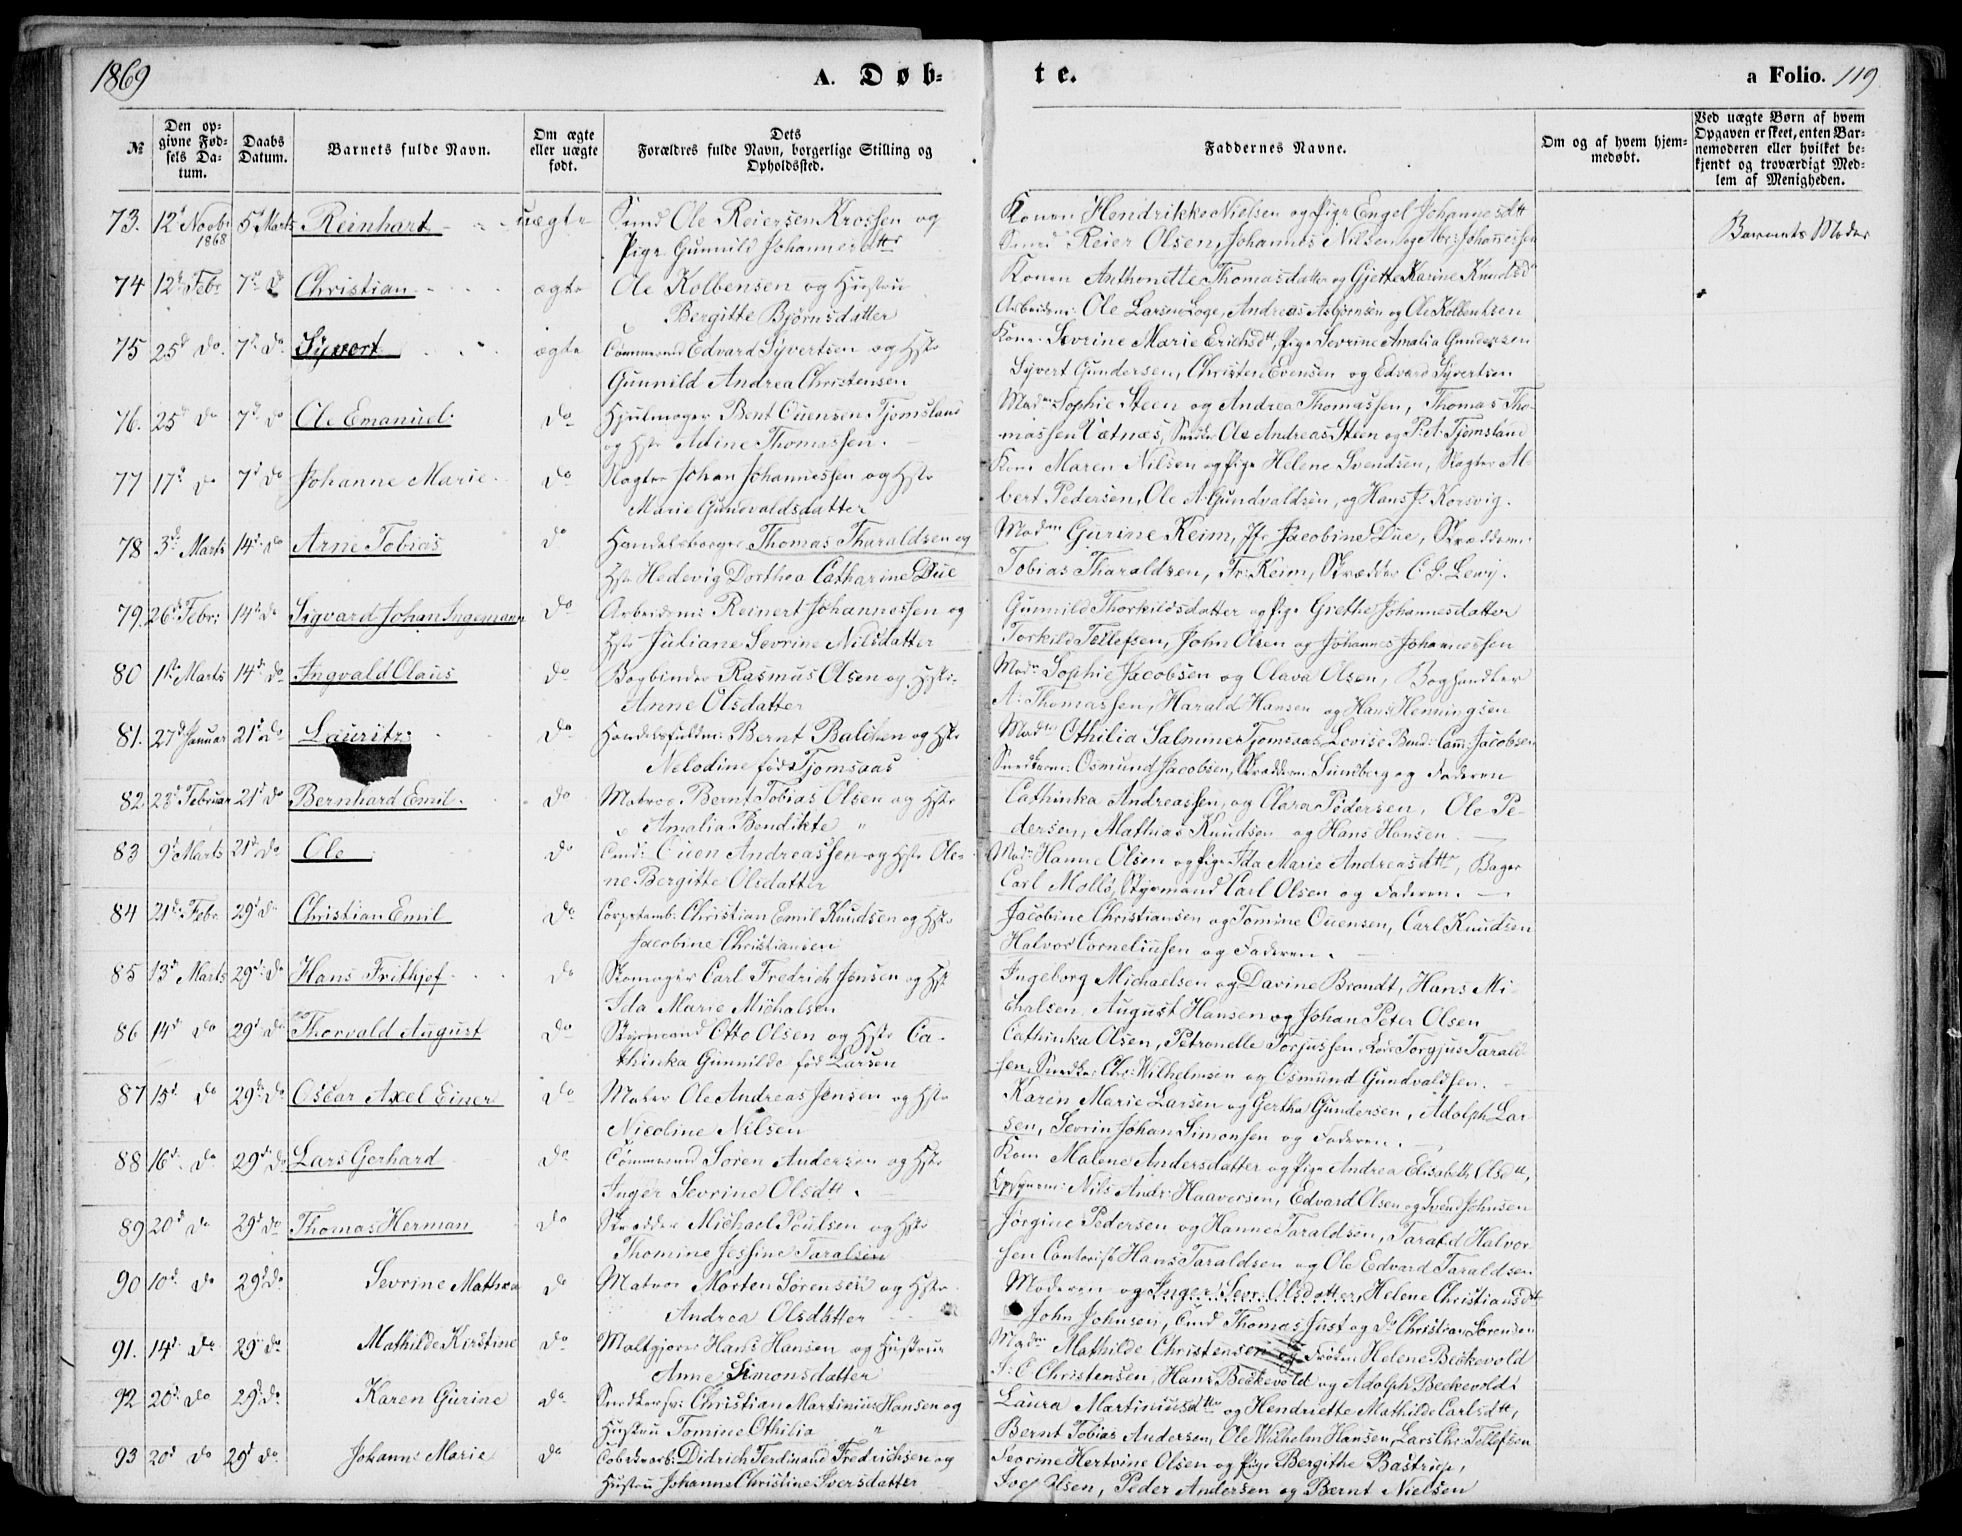 1869
A. Døb-
te.
a Folio. 119
№
Den op-
givne Fød-
sels Da-
tum.
Daabs
Datum.
Barnets fulde Navn.
Om ægte
eller uægte
født.
Dets
Forældres fulde Navn, borgerlige Stilling og
Opholdssted.
Faddernes Navne.
Om og af hvem hjem-
medøbt.
Ved uægte Børn af hvem
Opgaven er skeet, enten Bar-
nemoderen eller hvilket be-
kjendt og troværdigt Med-
lem af Menigheden.
73. 12t Novbr 5t Marts Reinhart uægte Smed Ole Reiersen Krossen og
1868
Pige Gunnild Johannesdtt
Konen Hendrikke Nielsen og Pige Engel Johannesdtt
Smed Reier Olsen, Johannes Nilsen og
Barnets Moder
74 12t Febr 7d do Christian ægte Ole Kolbensen og Hustru
Bergitte Bjørnsdatter
Konen Anthonette Thomasdatter og Gjette Karine Knudsd
Arbeidsm: Ole Larsen Loge, Andreas Asbjørnsen og Ole Kolbentsen
75 25d do. 7d do Syvert ægte Edvard Syvertsen og Hstr
Gunnild Andrea Christensen
Kone Sevrine Marie Erichsdtt, Pige Sevrine Amalia Gundersen
Syvert Gundersen, Christen Evensen og Edvard Syvertsen
76. 25d do 7d do Ole Emanuel do Hjulmager Bent Ouensen Tjomsland
og Hstr Adine Thomassen.
Madm Sophie Steen og Andrea Thomassen, Thomas Tho-
massen Vætnæs, Smed Ole Andreas Steen og P. A. Tjomsland
77 17d do 7d do Johanne Marie do Slagter Johan Johannessen og Hstr
Marie Gundvaldsdatter
Kone Maren Nilsen og Pige Helene Svendsen, Slagter Al-
bert Pedersen, Ole A. Gundvaldsen, og Hans J. Korsvig.
78 3d Marts 14d do Arne Tobias do Handelsborger Thomas Tharaldsen og
Hstr Hedevig Dorthea Catharine Due
Madm Gurine Keim, Jfr Jacobine Due,
Tobias Tharaldsen, Fr: Keim, Skrædder C. S. Lewy.
79. 26d Febr: 14d do Sigvard Johan Ingemann do Arbeidsm: Reinert Johannessen og
Hstr Juliane Sevrine Nilsdatter
Gunnild Thorkildsdatter og Pige Grethe Johannesdatter
Torkild Tellefsen, John Olsen og Johannes Johannessen
80 1ste Marts 14d do Ingvald Olaus do Bogbinder Rasmus Olsen og Hstr:
Anne Olsdatter
Madm Sophie Jacobsen og Olava Olsen, Boghandler
A. Thomassen, Harald Hansen og Hans Henningsen
81. 27d Januar 21d do Lauritz do Handelsfuldm: Bernt Balchen og Hstr
Nelodine fød Tjomsaas
Madm Othilia Salmine Tjomsaas, Lovise Jacobsen
Snedkerm: Osmund Jacobsen, Skrædderm: Sundberg og Faderen
82. 23d Februar 21d do Bernhard Emil do Matros Bernt Tobias Olsen og Hstr
Amalia Bendikte "
Cathinka Andreassen, og Clara Pedersen, Ole Pe-
dersen, Mathias Knudsen og Hans Hansen
83 9d Marts 21d do Ole do Ouen Andreassen og Hstr Ole-
ne Bergitte Olsdatter
Madm Hanne Olsen og Pige Ida Marie Andreasdtt, Bager
Carl Mollø, Styrmand Carl Olsen og Faderen.
84 21d Febr. 29d do Christian Emil do Christian Emil Knudsen og Hstr
Jacobine Christiansen
Jacobine Christiansen og Tomine Ouensen, Carl Knudsen
Halvor Corneliussen og Faderen.
85 13d Marts 29d do Hans Frithjof do Skomager Carl Fredrich Jensen og Hst
Ida Marie Michalsen
Ingeborg Michaelsen og Davine Brandt, Hans Mi-
chalsen, August Hansen og Johan Peter Olsen
86 14d do 29d do Thorvald August do Styrmand Otto Olsen og Hstr Ca-
thinka Gunnilde fød Larsen
Cathinka Olsen, Petronelle Torjussen, Torgjus Tarald-
sen, Snedker Chr: Wilhelmsen og Osmund Gundvaldsen.
87 15d do 29d do Oscar Axel Einer do Maler Ole Andreas Jensen og Hstr
Nicoline Nilsen
Karen Marie Larsen og Gertha Gundersen, Adolph Lar-
sen, Sevrin Johan Simonsen og Faderen.
88 16d do 29d do Lars Gerhard do Søren Andersen og Hstr
Inger Sevrine Olsdtt.
Kone Malene Andersdatter og Pige Andrea Elisabeth Olsdtt,
Nils Andr: Haaversen, Edvard Olsen og Svend Johnsen
89 20d do 29d do Thomas Herman do Skrædder Michael Poulsen og Hstr
Thomine Jessine Taralsen
Jørgine Pedersen og Hanne Taraldsen, Tarald Halvor-
sen Contorist Hans Taraldsen og Ole Edvard Taraldsen
90 10d do 29d do Sevrine Mathea do Matros Morten Sørensen og Hstr
Andrea Olsdatter
Moderen og Inger Sevr. Olsdatter, Helene Christiansdtt
John Johnsen, Thomas Just og do Christian Sørensen
91. 14d do 29d do Mathilde Kirstine do Maltgjører Hans Hansen og Hustrue
Anne Simonsdatter
Madm Mathilde Christensen og Frøken Helene Beckevold
S. C Christensen, Hans Beckevold og Adolph Beckevold
92 20d do 29d do Karen Gurine do Christian Martinius Hansen og
Hustru Tomine Othilia "
Laura Martiniusdtt og Hendriette Mathilde Carlsdtt,
Bernt Tobias Andersen, Ole Wilhelm Hansen, Lars Chr: Tellefsen
93 20d do 29d do Johanne Marie do Didrich Ferdinand Fredrichsen og
Hustru Johanne Christine Iversdatter
Sevrine Hertvine Olsen og Pige Bergithe Bastrup,
Olsen, Peder Andersen og Bernt Nielsen